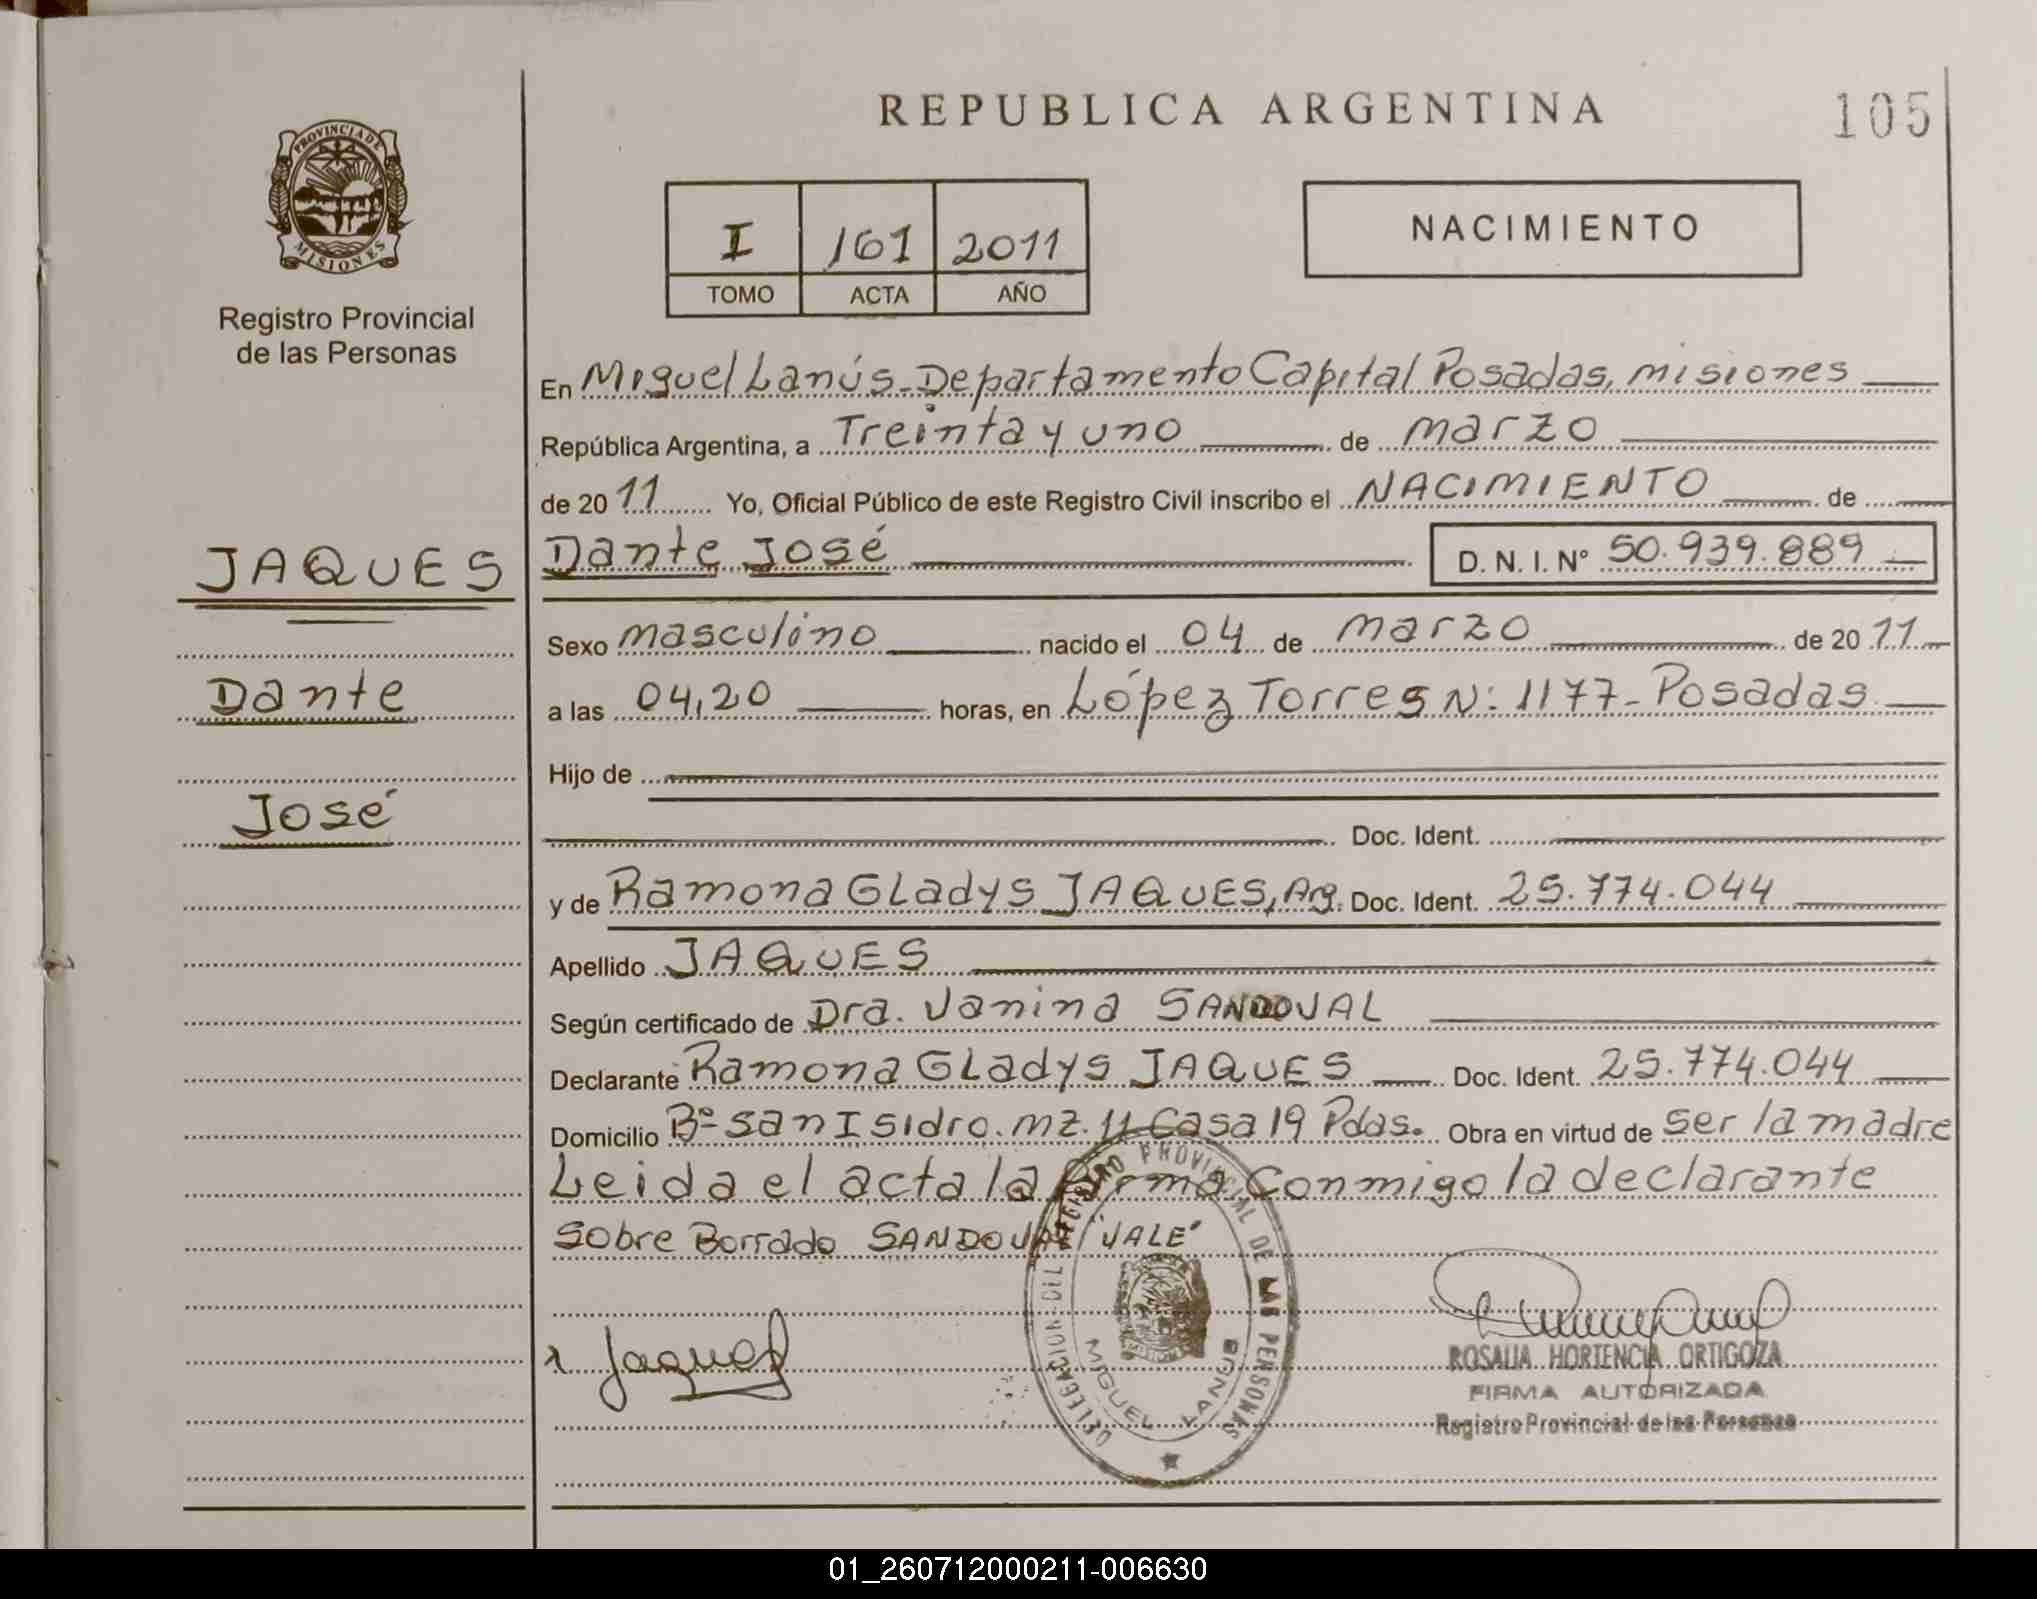 REPUBLICA ARGENTINA
105
PROVINCIA DE
MISIONES
Registro Provincial
de las Personas
I 161 2011
TOMO ACTA AÑO
NACIMIENTO
En Miguel Lanús - Departamento Capital Posadas, Misiones
República Argentina, a Treinta y uno de marzo
de 2011 Yo, Oficial Público de este Registro Civil inscribo el NACIMIENTO de
JAQUES
Dante José D. N. I. Nº 50.939.889
Sexo masculino nacido el 04 de marzo de 2011
Dante
a las 04,20 horas, en López Torres N: 1177 - Posadas
Hijo de
José
Doc. Ident.
y de Ramona Gladys JAQUES, Arg. Doc. Ident. 25.774.044
Apellido JAQUES
Según certificado de Dra. Janina SANDOVAL
Declarante Ramona Gladys JAQUES Doc. Ident. 25.774.044
Domicilio Bº San Isidro. mz. 11 Casa 19 Pdas. Obra en virtud de ser la madre
Leida el acta la firma conmigo la declarante
Sobre Borrado SANDOVAL "VALE"
DELEGACION DEL REGISTRO PROVINCIAL DE LAS PERSONAS
MIGUEL LANUS
Jaques
ROSALIA HORTENCIA ORTIGOZA
FIRMA AUTORIZADA
Registro Provincial de las Personas
01_260712000211-006630